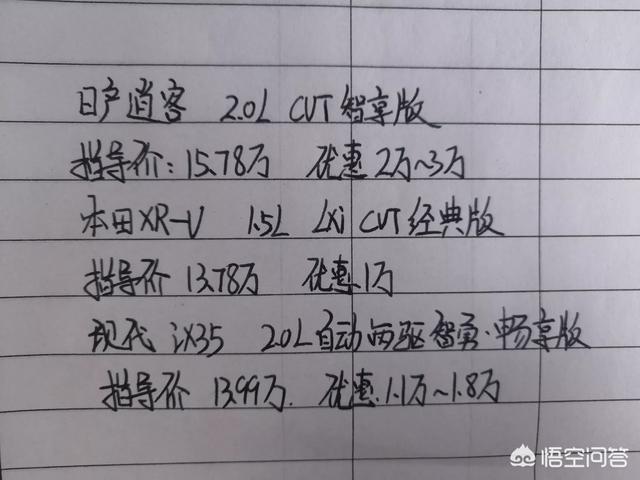 日产逍客 2.0L CVT智享版
指导价：15.78万 优惠2万~3万
本田XR-V 1.5L LXi CVT经典版
指导价 13.78万 优惠1万
现代ix35 2.0L自动两驱智勇·畅享版
指导价 13.99万. 优惠1.1万~1.8万
悟空问答